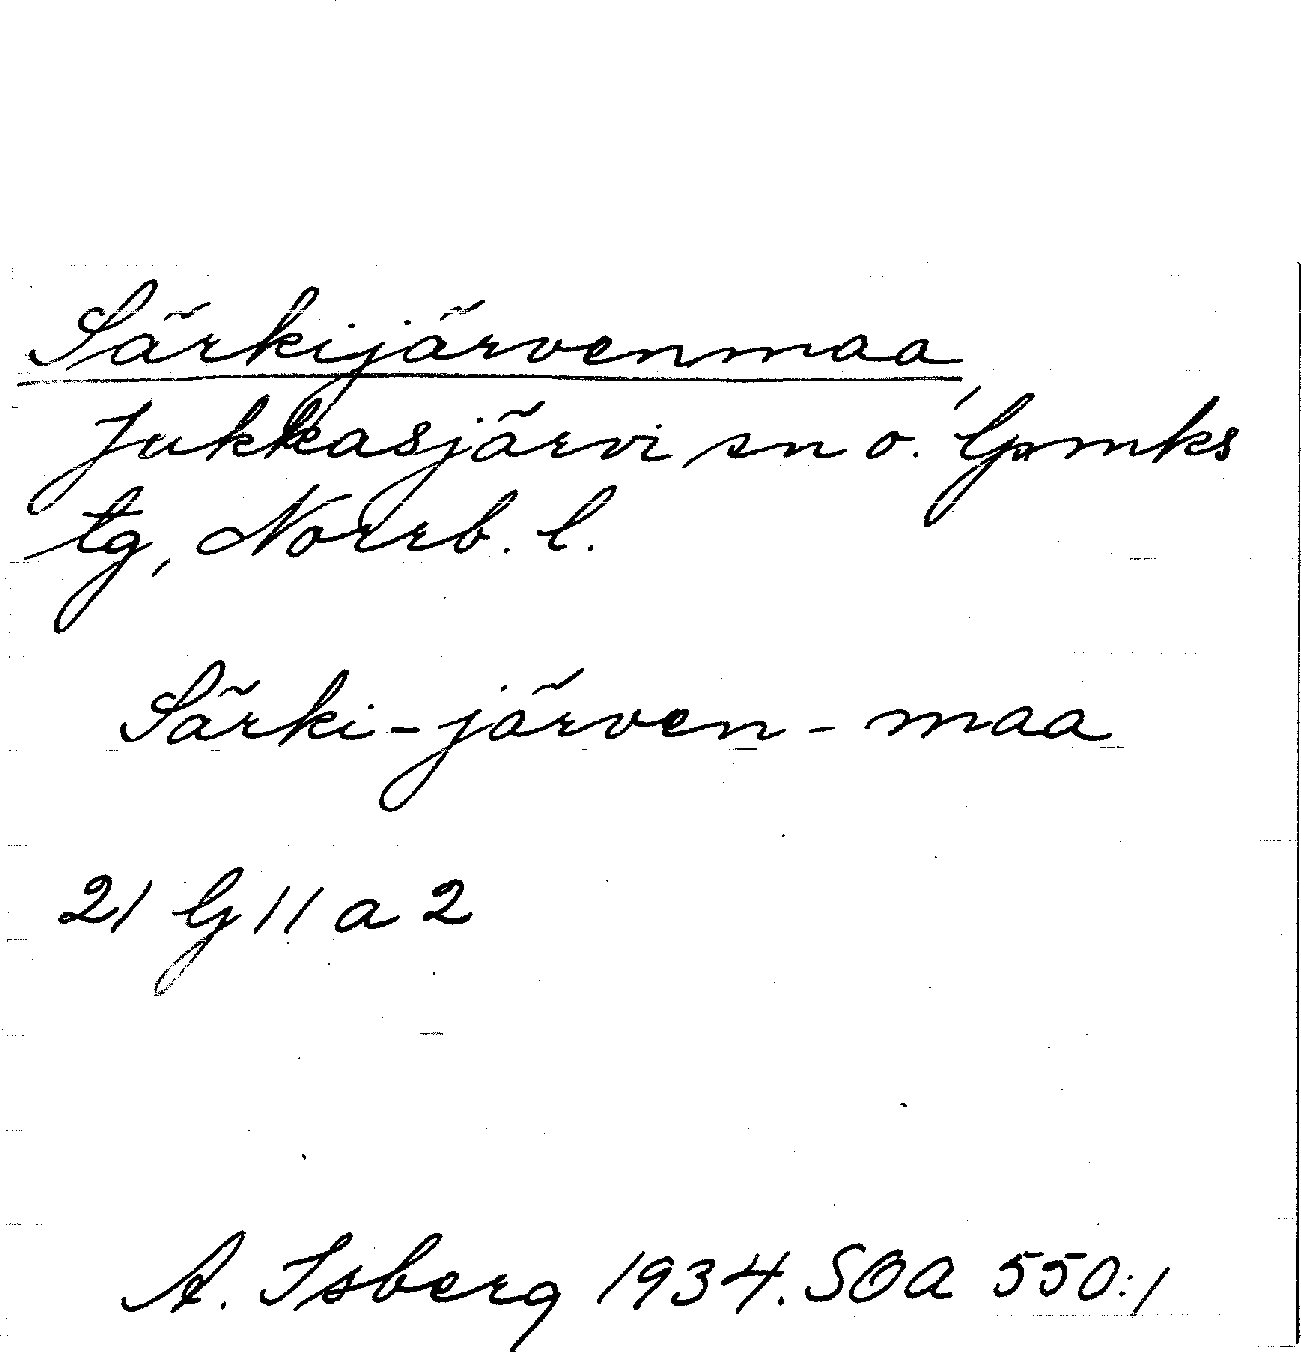 Särkijärvenmaa,
Jukkasjärvi sn o. lpmks
tg, Norrb. l.
Särki-järven-maa
21 G 11 a 2
A. Isberg 1934. SOA 550:1